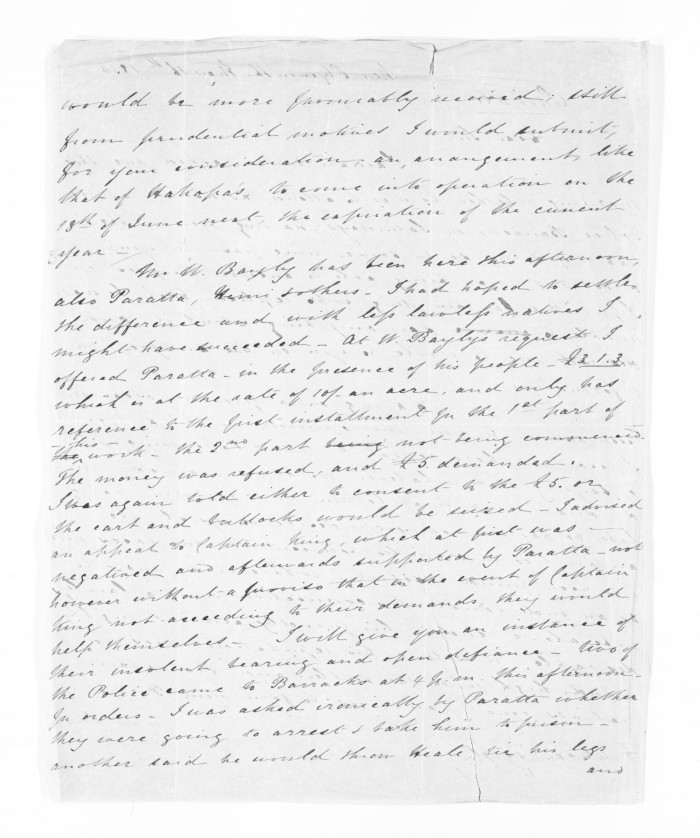 would be more favourably received; still
from prudential motives I would submit,
for your consideration, an arrangement, like
that of Hahapa's, to come into operation on the
18th of June next, the expiration of the current
year –
Mr W. Bayly has been here this afternoon,
also Paratta, & others – I had hoped to settle
the difference and with less lawless natives I
might have succeeded – At W. Bayly's request I
offered Paratta – in the presence of his people – £3.1.3
which is at the rate of 10/. an acre, and only has
reference to the first installment for the 1st part of
the this work – the 2nd part being not being commenced.
The money was refused, and £5. demanded.
I was again told either to consent to the £5. or
the cart and bullocks would be seized – I advised
an appeal to Captain King, which at first was –
negatived and afterwards supported by Paratta – not
however without a proviso that in the event of Captain
King not acceeding to their demands, they would
help themselves – I will give you an instance of
their insolent bearing and open defiance – two of
the Police came to Barracks at 4 p.m. this afternoon –
for orders – I was asked ironically by Paratta whether
they were going to arrest & take him to prison –
another said he would throw Heale tie his legs
and